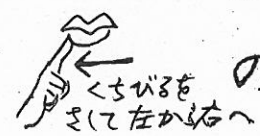 くちびるを
さして左から右へ